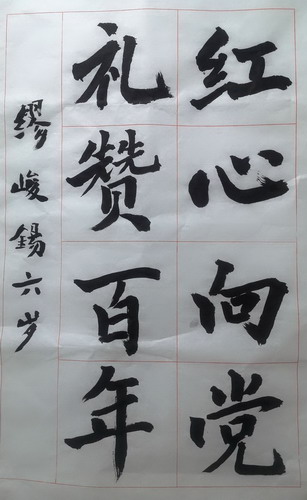 红心向党
礼赞百年
缪峻锡六岁